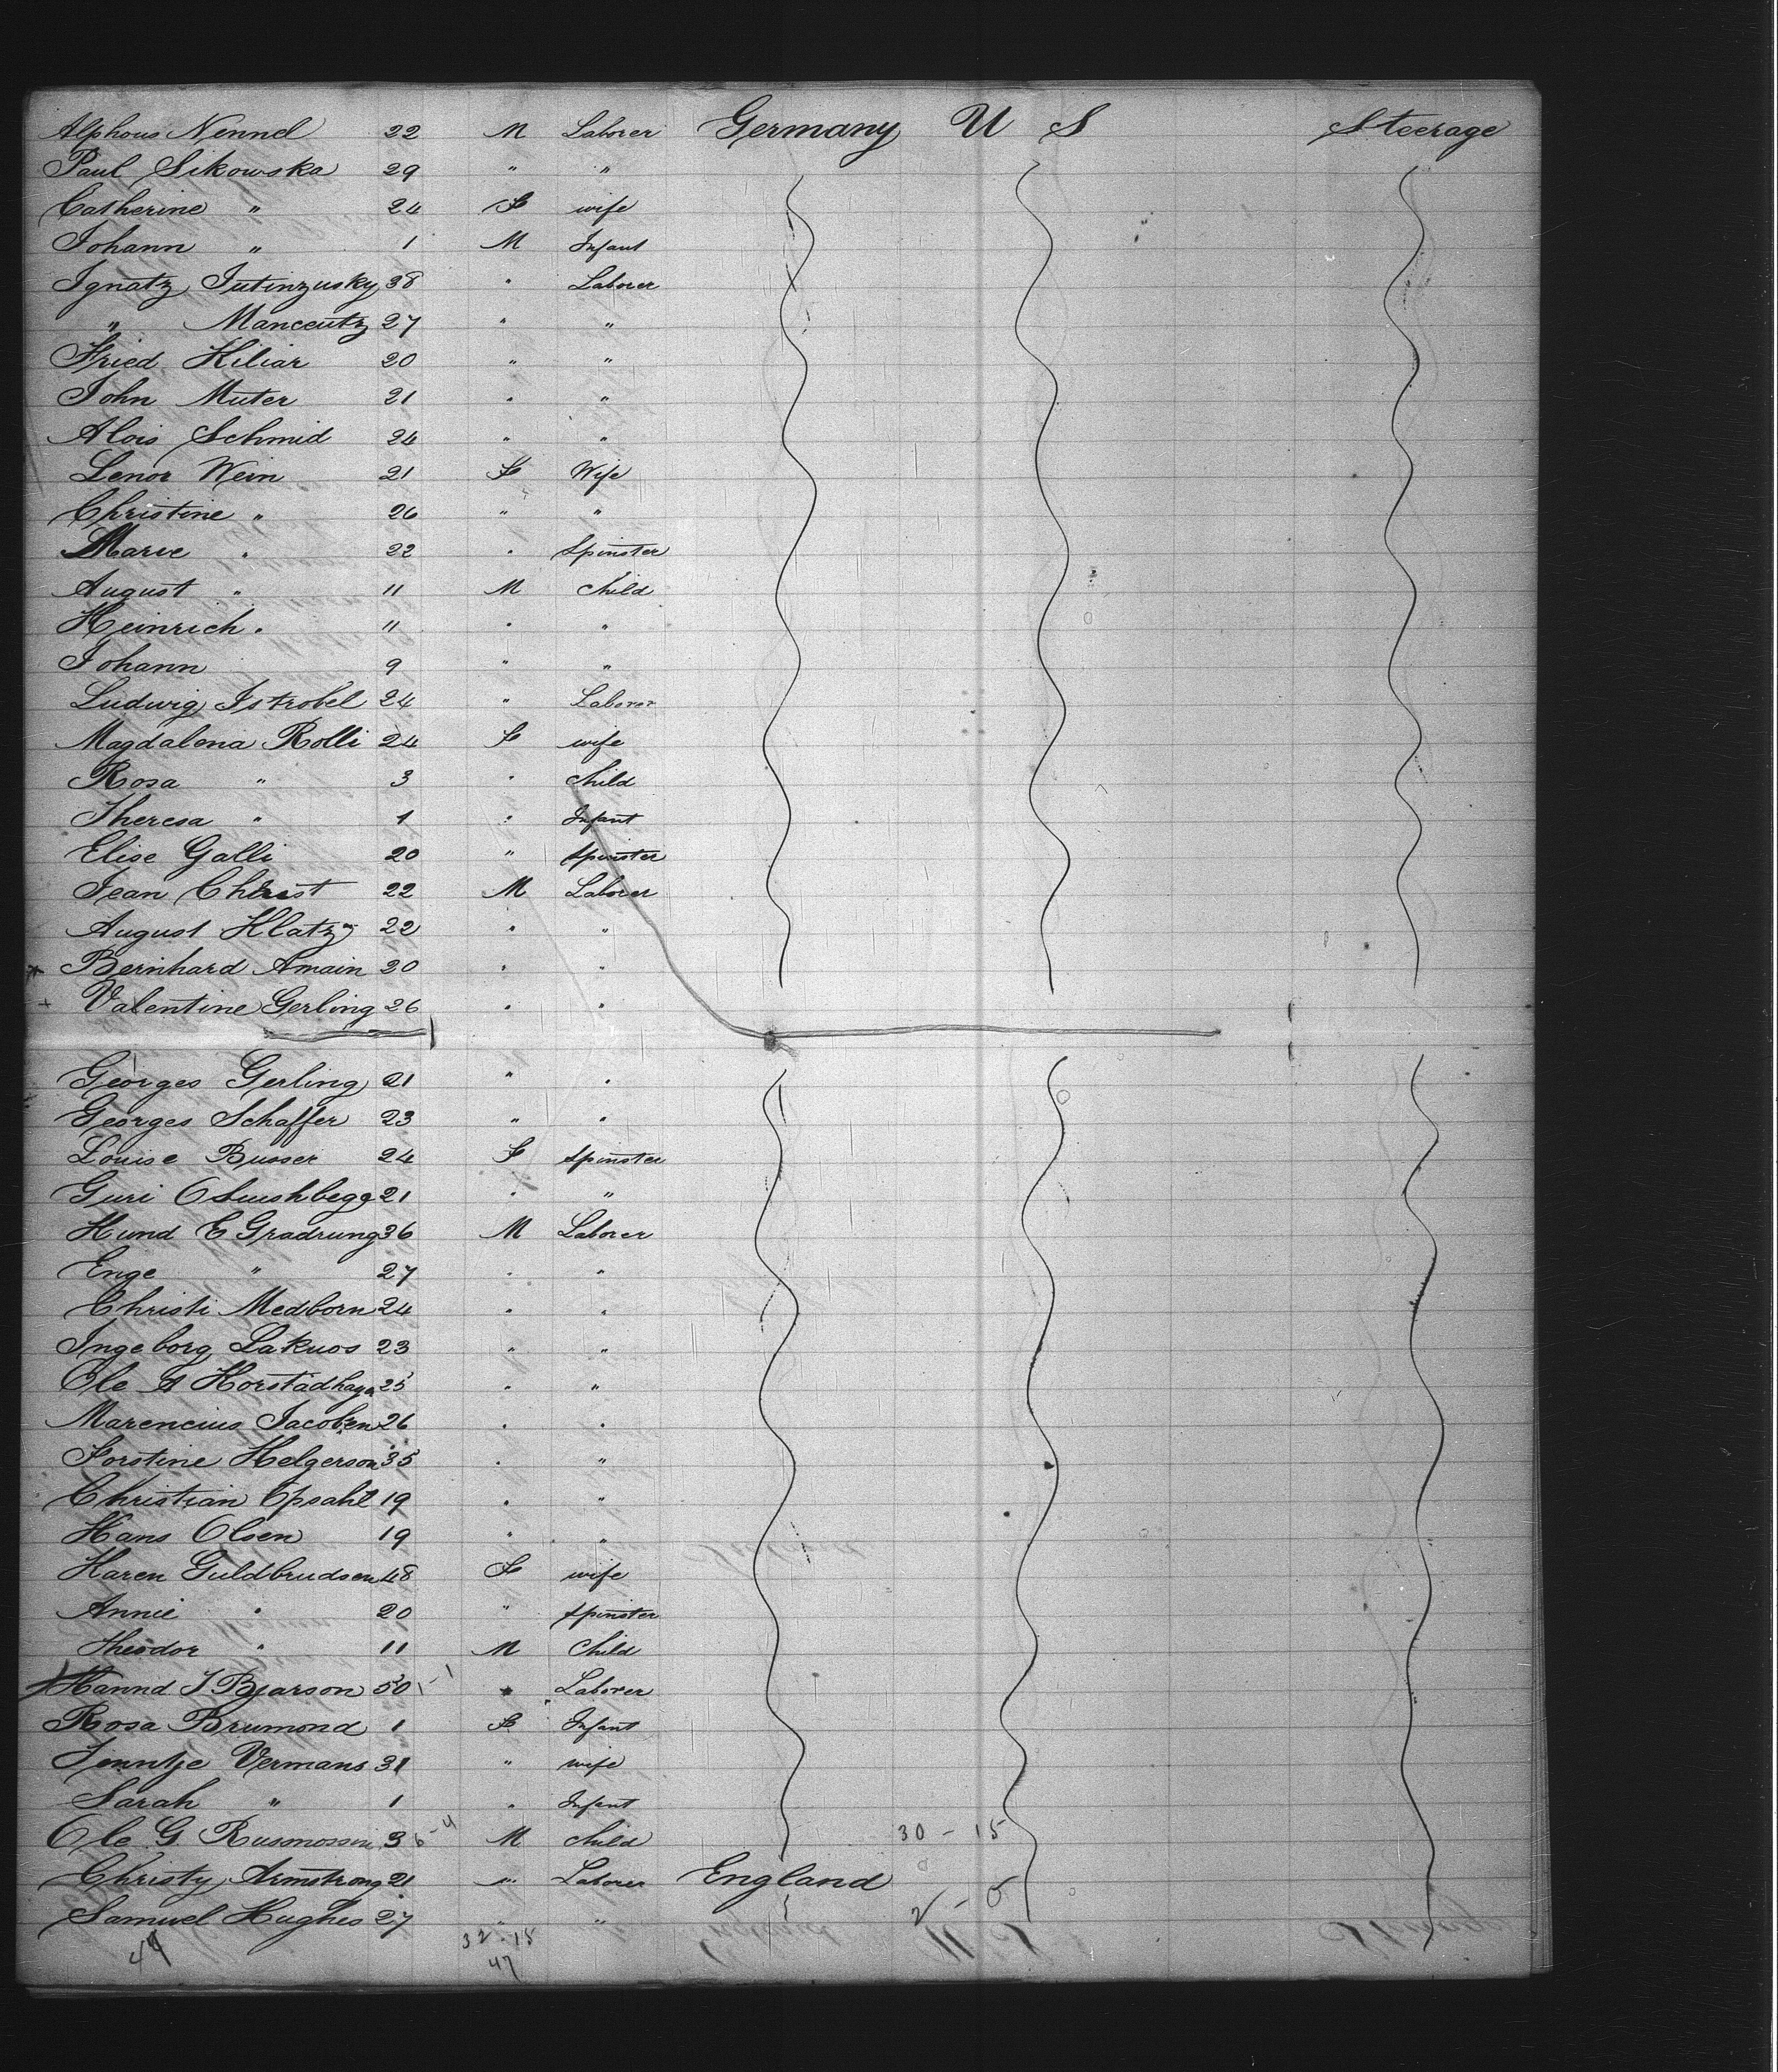 Alphons Nennel 22 M Laborer Germany U S Steerage
Paul Sikowska 29 " "
Catherine " 24 F wife
Johann " 1 M Infant
Ignatz Jutinzusky 38 " Laborer
" Manceutz 27 " "
Fried Kiliar 20 " "
John Muter 21 " "
Alois Schmid 24 " "
Lenor Wein 21 F Wife
Christine " 26 " "
Marie " 22 " Spinster
August " 11 M Child
Heinrich " 11 " "
Johann 9 " "
Ludwig Istrobel 24 " Laborer
Magdalena Rolli 24 F wife
Rosa " 3 " Child
Theresa " 1 " Infant
Elise Galli 20 " Spinster
Jean Christ 22 M Laborer
August Klatz 22 " "
Bernhard Amain 20 " "
Valentine Gerling 26 " "
Georges Gerling 21 " "
Georges Schaffer 23 " "
Louise Busser 24 F Spinster
Guri 21 " "
Kund E Gradrung 36 M Laborer
Enge " 27 " "
Christi Medborn 24 " "
Ingeborg Lakuos 23 " "
Ole A Horstadhagn 25 " "
Marencius Jacobsen 26 " "
Torstine Helgerson 35 " "
Christian Opsahl 19 " "
Hans Olsen 19 " "
Karen Guldbrudsen 48 F wife
Annie " 20 " Spinster
Theodor " 11 M Child
Hannd T Bjarson 50 - 1 " Laborer
Rosa Brumond 1 F Infant
Jenntje Vermans 31 " wife
Sarah " 1 " Infant
Ole G Rusmossin 3 6-4 M Child 30 - 15
Christy Armstrong 21 " Laborer England
Samuel Hughes 27 " " 2 - 0
47 32.15
47